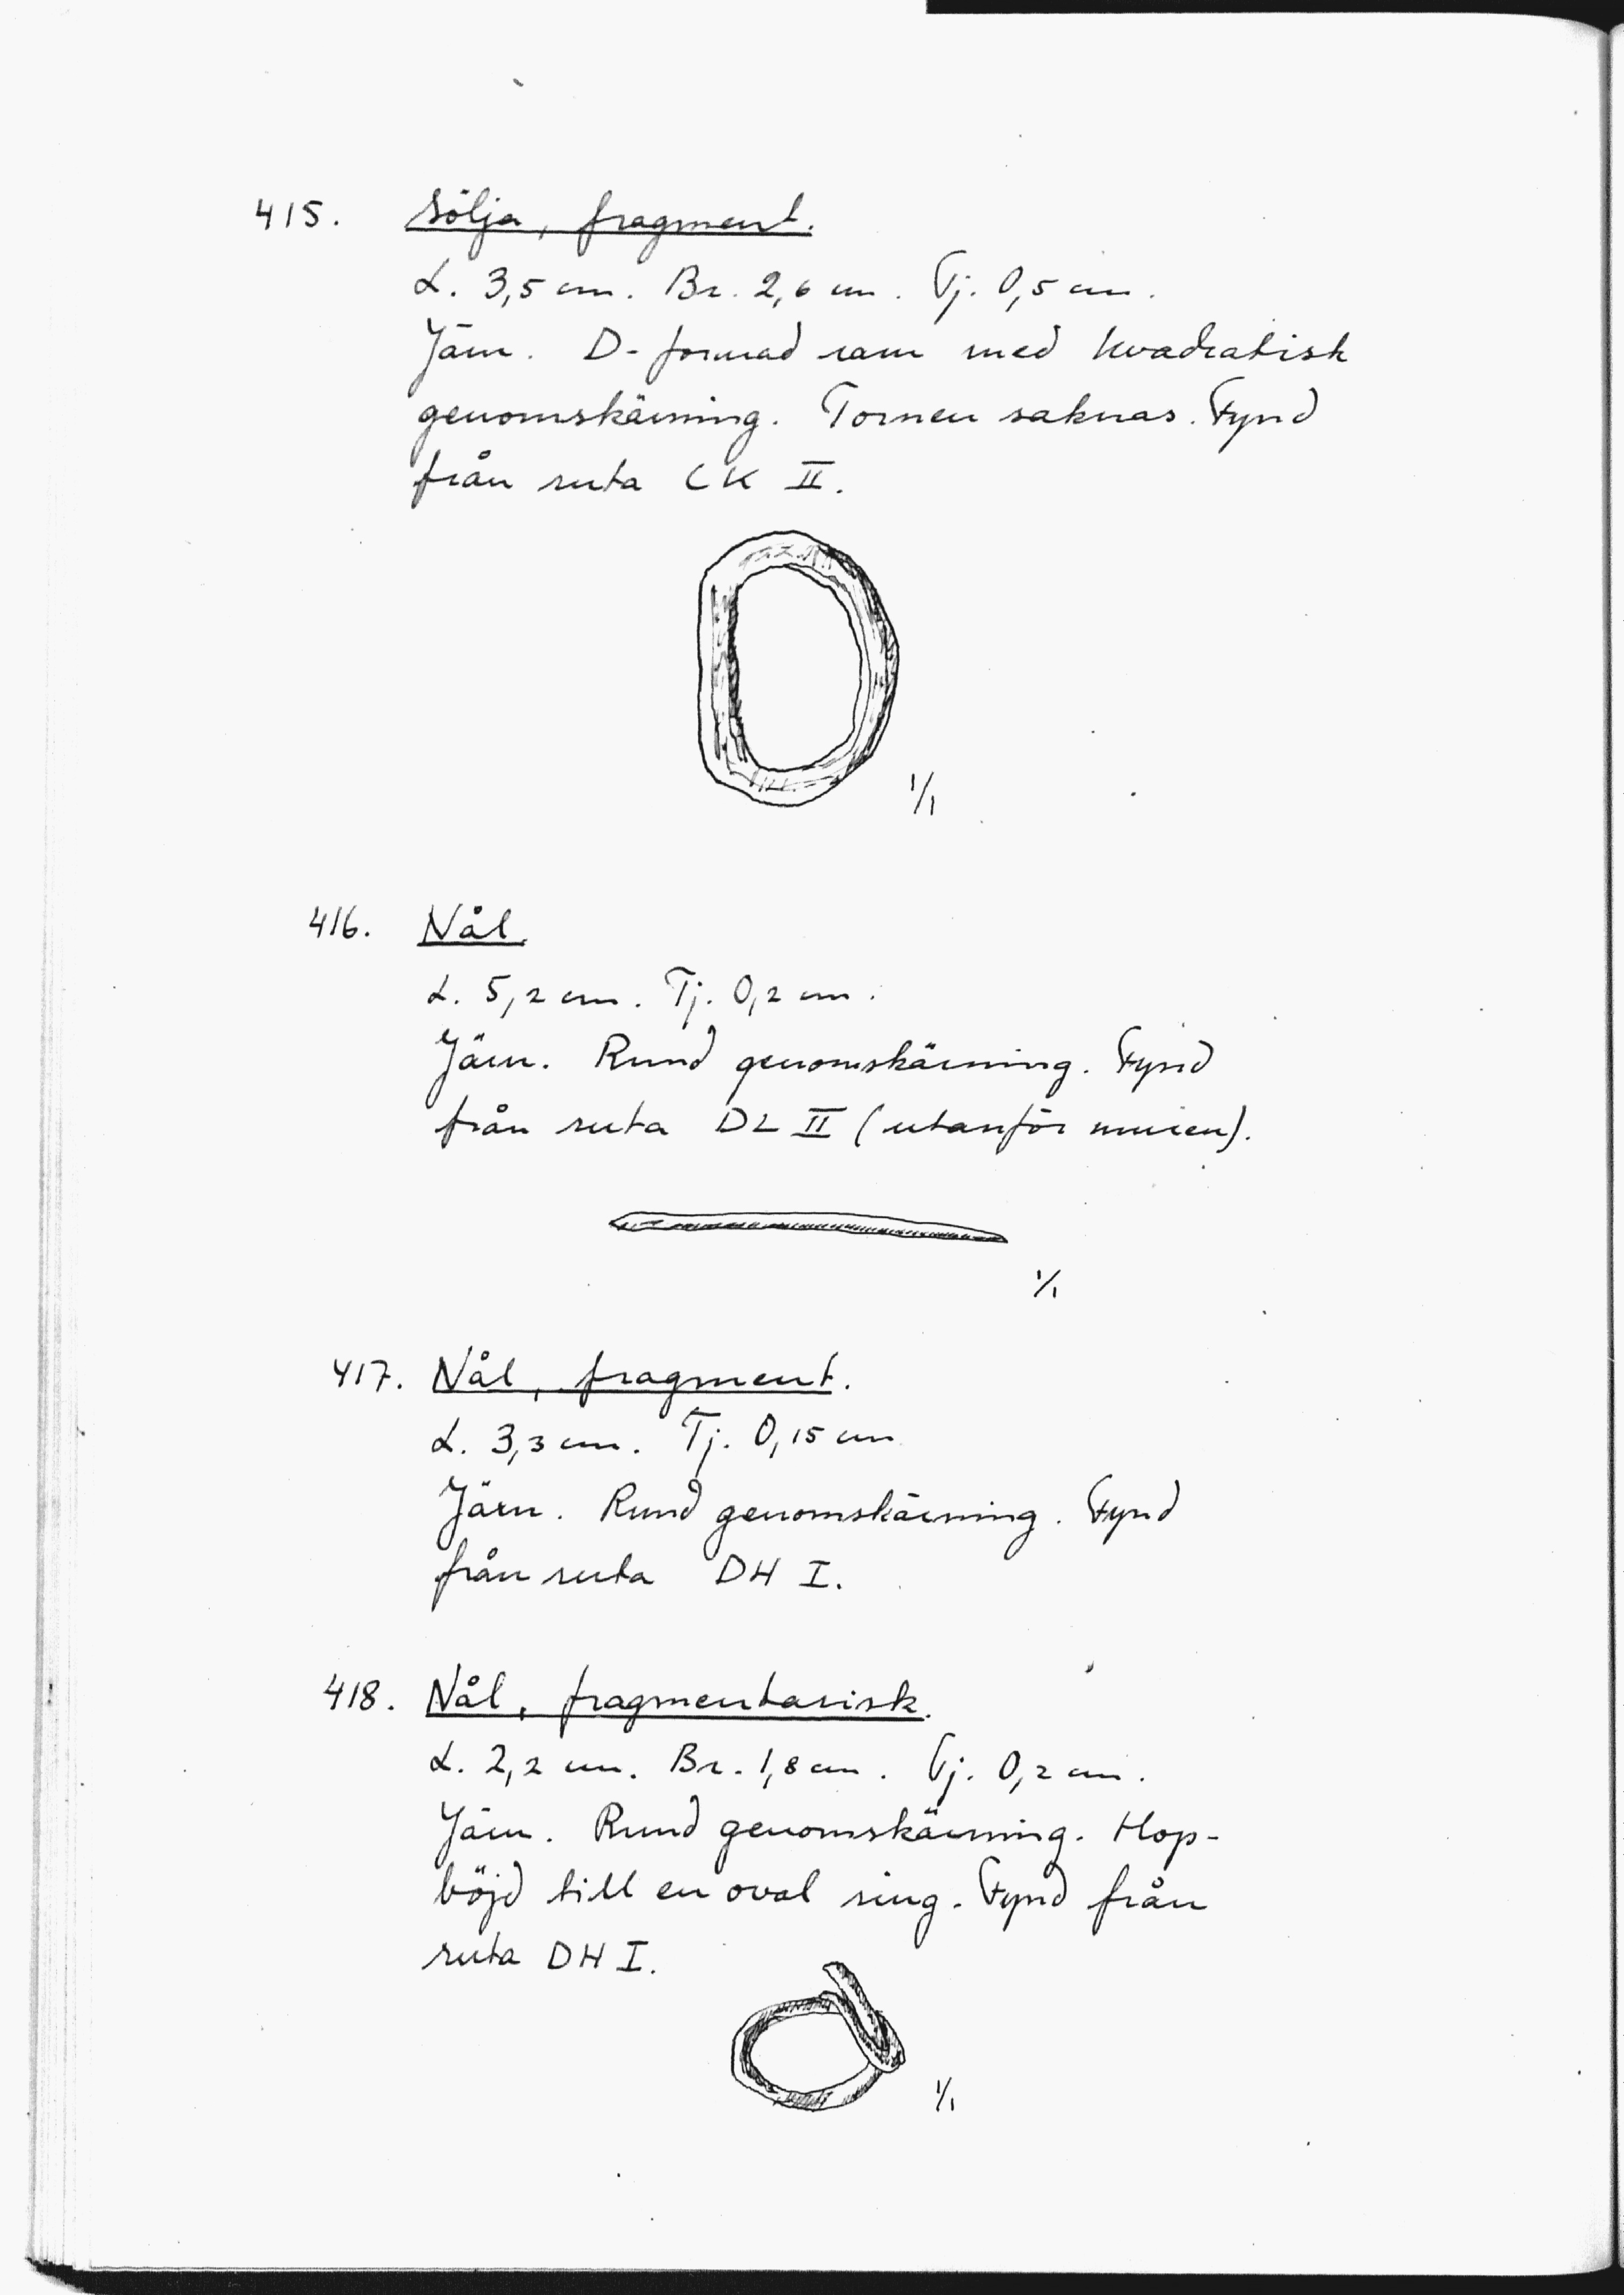 415. Sölja, fragment.
L. 3,5 cm. Br. 2,6 cm. Tj. 0,5 cm.
Järn. D-formad ram med kvadratisk
genomskärning. Tornen saknas. Fynd
från ruta CK II.
1/1
416. Nål.
L. 5,2 cm. Tj. 0,2 cm.
Järn. Rund genomskärning. Fynd
från ruta DL II (utanför muren).
1/1
417. Nål, fragment.
L. 3,3 cm. Tj. 0,15 cm
Järn. Rund genomskärning. Fynd
från ruta DH I.
418. Nål, fragmentarisk.
L. 2,2 cm. Br. 1,8 cm. Tj. 0,2 cm.
Järn. Rund genomskärning. Hop-
böjd till en oval ring. Fynd från
ruta DH I.
1/1